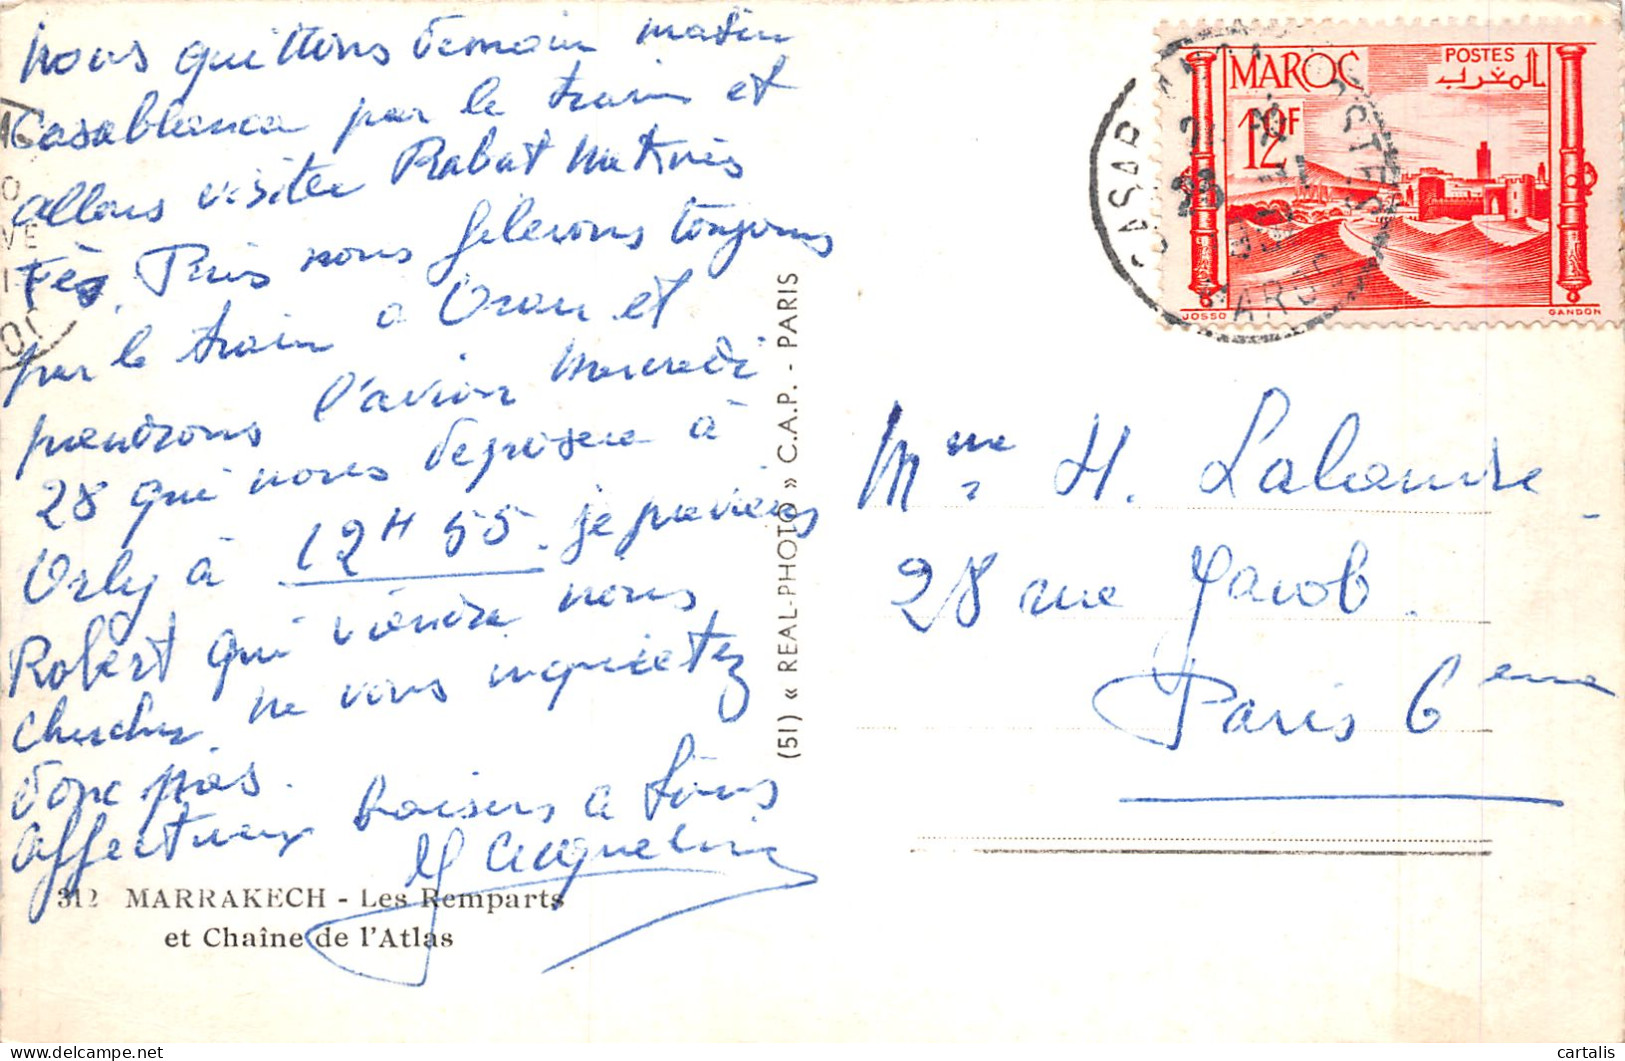 Nous quittons demain matin
Casablanca par le train et
allons visiter Rabat Meknès
Fès. Puis nous filerons toujours
par le train à Oran et
prendrons l'avion Mercredi
28 qui nous déposera à
Orly à 12H 55. je préviens
Robert qui viendra nous
chercher ne vous inquietez
donc pas.
Affectueux baisers à tous
Jacqueline
312 MARRAKECH - Les Remparts
et Chaîne de l'Atlas
(51) « REAL-PHOTO » C.A.P. - PARIS
MAROC
POSTES
المغرب
12F
JOSSO
GANDON
CASABLANCA POSTES
23
MAROC
Mme H. Lalande
28 rue Jacob.
Paris 6eme
cartalis